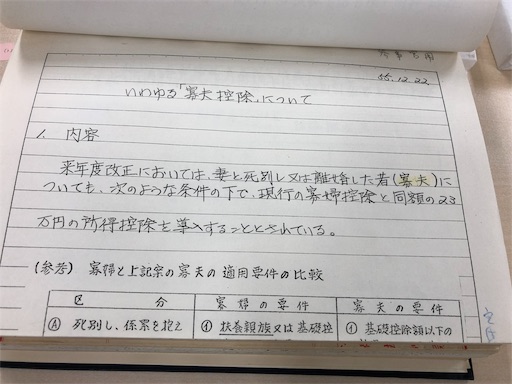 55.12.22
いわゆる「寡夫控除」について
1. 内容
来年度改正においては、妻と死別し又は離婚した者(寡夫)に
ついても、次のような条件の下で、現行の寡婦控除と同額の23
万円の所得控除を導入することとされている。
(参考) 寡婦と上記案の寡夫の適用要件の比較
区 分 寡婦の要件 寡夫の要件
Ⓐ 死別し、係累を抱え ① 扶養親族又は基礎控 ① 基礎控除額以下の